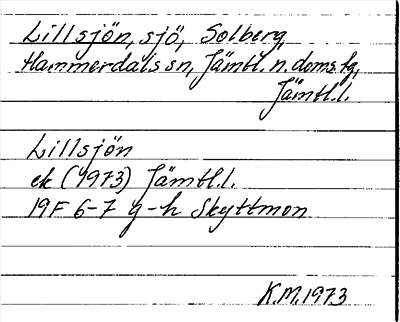 Lillsjön, sjö, Solberg,
Hammerdals sn, Jämtl. n. doms.fg,
Jämtl.l.
Lillsjön
ek (1973) Jämtl.l.
19F 6-7 g-h Skyttmon
K.M.1973